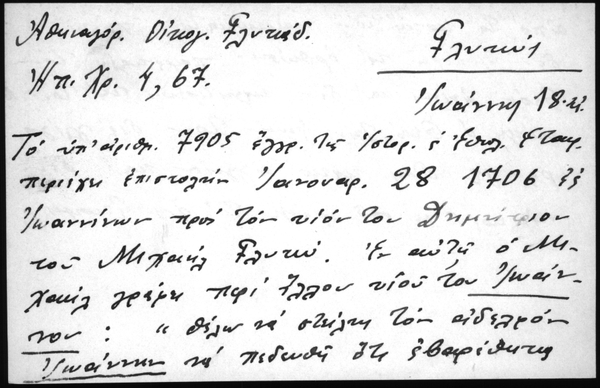 Ἀθηναγόρ. Οἰκογ. Γλυκήδ.
Γλυκύς
Ἠπ. Χρ. 4, 67.
Ἰωάννης 18.
Τό ὑπ' ἀριθμ. 7905 ἔγγρ. τῆς Ἱστορ. & Ἐθνολ. Ἑταιρ.
περιέχει ἐπιστολήν Ἰανουαρ. 28 1706 ἐξ
Ἰωαννίνων πρός τόν υἱόν του Δημήτριον
τοῦ Μιχαήλ Γλυκύ. Ἐν αὐτῇ ὁ Μι-
χαήλ γράφει περί ἄλλου υἱοῦ του Ἰωάν-
νου: " θέλω νά στείλῃς τόν ἀδελφόν
Ἰωάννην νά πεδευθῇ ὅτι ἐβαρέθηκα